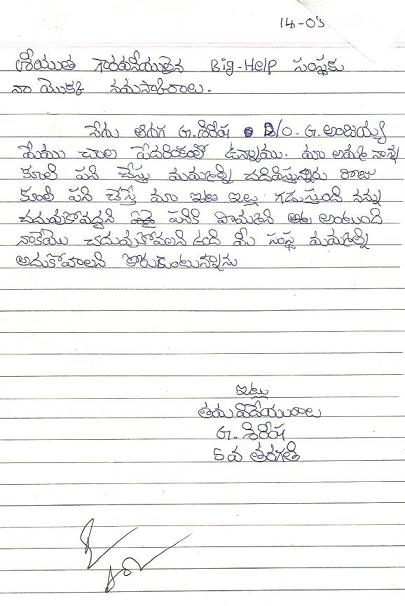 14-05
శ్రీయుత గౌరవనీయులైన Big-Help సంస్థకు
నా యొక్క నమస్కారాలు.
నేను G. శిరీష D/O. G. అంజయ్య
మేము చాల పేదరికంతో ఉన్నాము. మా అమ్మ నాన్న
కూలి పని చేస్తు మమ్మల్ని చదివిస్తున్నారు రోజు
కూలి పని చేస్తే మా ఇల్లు గడుస్తుంది నన్ను
చదువుకోవద్దని పనికి పొమ్మని అంటుంది
నాకేమొ చదువుకోవాలని ఉంది మీ సంస్థ మమ్మల్ని
ఆదుకోవాలని కోరుకుంటున్నాను
ఇట్లు
తమ విధేయురాలు
G. శిరీష
5వ తరగతి